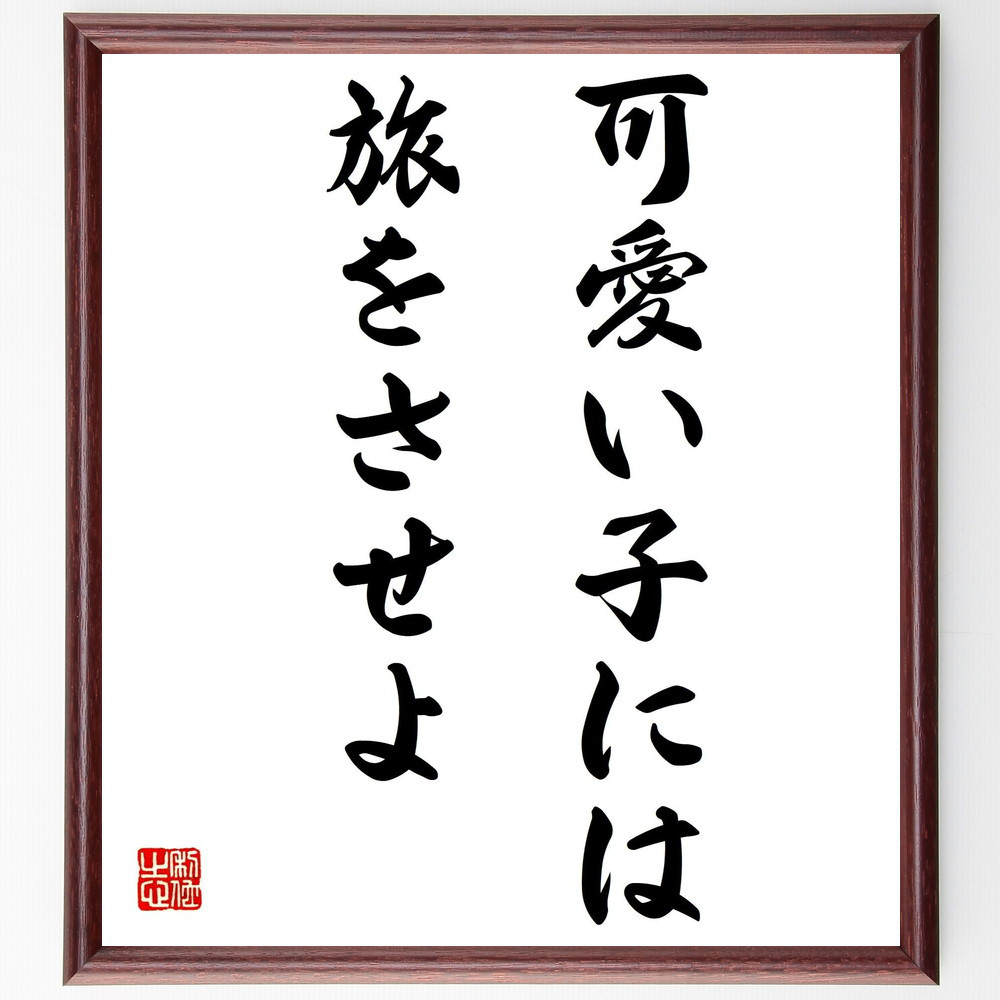 可愛い子には
旅をさせよ